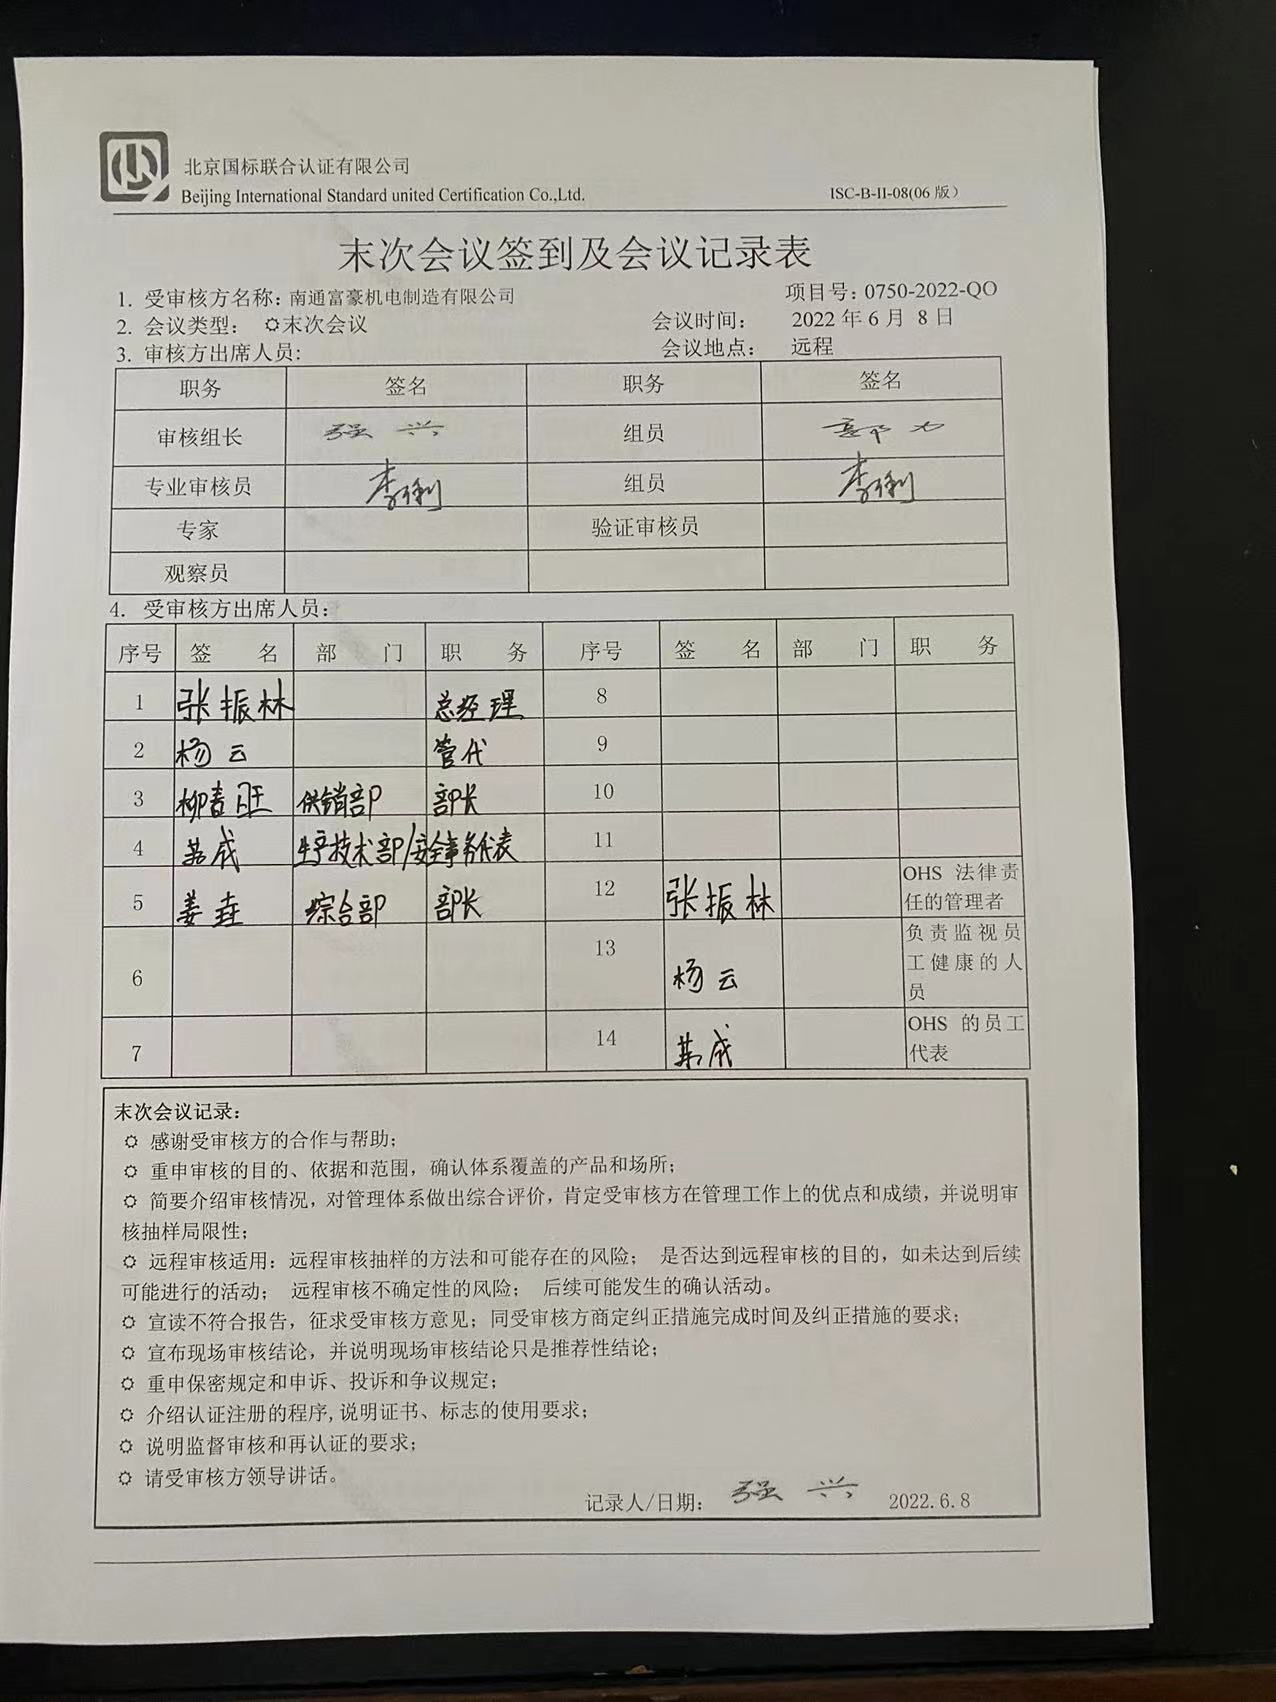 北京国标联合认证有限公司
Beijing International Standard united Certification Co.,Ltd.
ISC-B-II-08(06 版)
末次会议签到及会议记录表
1. 受审核方名称：南通富豪机电制造有限公司 项目号：0750-2022-QO
2. 会议类型： 末次会议 会议时间： 2022 年 6 月 8 日
3. 审核方出席人员: 会议地点： 远程
职务 签名 职务 签名
审核组长 强兴 组员 郭力
专业审核员 李俐 组员 李俐
专家 验证审核员
观察员
4. 受审核方出席人员：
序号 签 名 部 门 职 务 序号 签 名 部 门 职 务
1 张振林 总经理 8
2 杨云 管代 9
3 柳春旺 供销部 部长 10
4 生产技术部/安全事务代表 11
5 姜垚 综合部 部长 12 张振林 OHS 法律责
任的管理者
6 13 杨云 负责监视员
工健康的人
员
7 14 OHS 的员工
代表
末次会议记录：
感谢受审核方的合作与帮助；
重申审核的目的、依据和范围，确认体系覆盖的产品和场所；
简要介绍审核情况，对管理体系做出综合评价，肯定受审核方在管理工作上的优点和成绩，并说明审
核抽样局限性；
远程审核适用：远程审核抽样的方法和可能存在的风险； 是否达到远程审核的目的，如未达到后续
可能进行的活动； 远程审核不确定性的风险； 后续可能发生的确认活动。
宣读不符合报告，征求受审核方意见；同受审核方商定纠正措施完成时间及纠正措施的要求；
宣布现场审核结论，并说明现场审核结论只是推荐性结论；
重申保密规定和申诉、投诉和争议规定；
介绍认证注册的程序,说明证书、标志的使用要求；
说明监督审核和再认证的要求；
请受审核方领导讲话。
记录人/日期： 强兴 2022.6.8